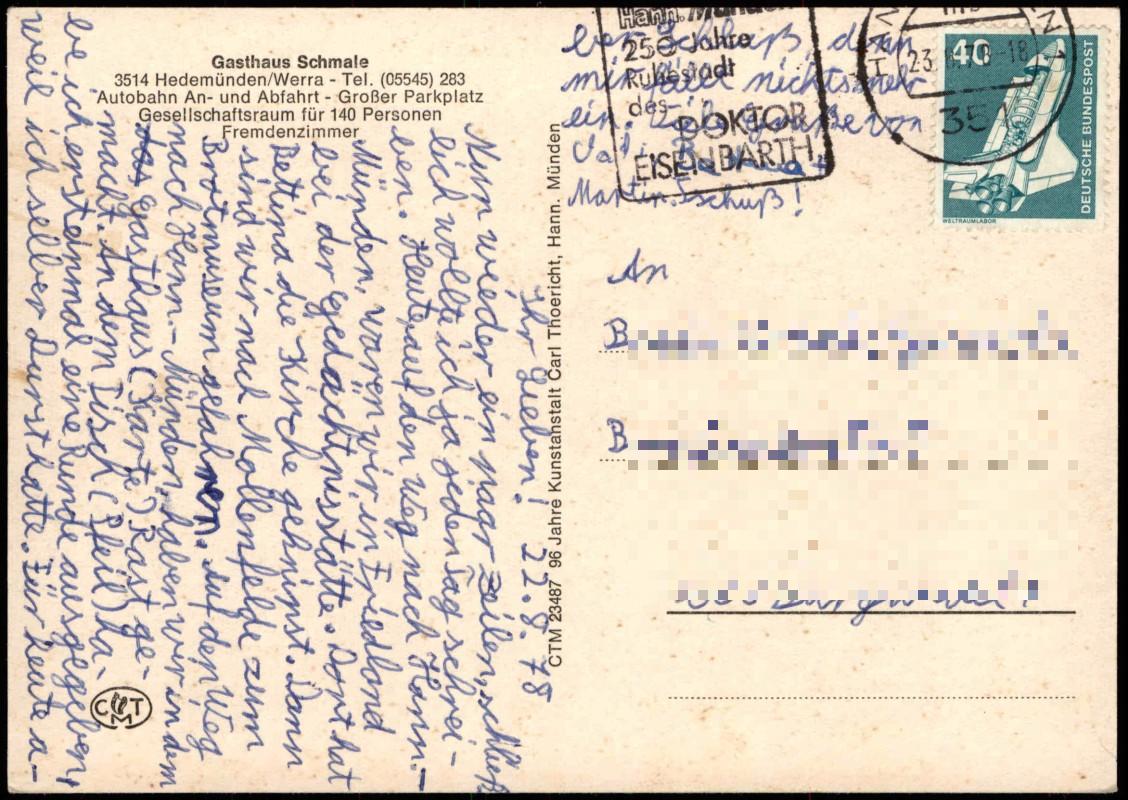 Gasthaus Schmale
3514 Hedemünden/Werra - Tel. (05545) 283
Autobahn An- und Abfahrt - Großer Parkplatz
Gesellschaftsraum für 140 Personen
Fremdenzimmer
Ihr Lieben! 22.8.78
Nun wieder ein paar Zeilen, schließ
lich wollte ich ja jeden Tag schrei-
ben. Heute, auf den Weg nach Hann.-
Münden, waren wir in Friedland
bei der gedächtnisstätte. Dort hat
Bettina die Kirche geknipst. Dann
sind wir nach Mollenfelde zum
Brotmuseum gefahren. Auf den Weg
nach Hann-Münden, haben wir in dem
gasthaus (Karte) Rast ge-
macht. An dem Tisch (Pfeil) ha-
be ich ersteinmal eine Runde ausgegeben,
weil ich selber Durst hatte. Für heute a-
ber Schluß, denn
mir fällt nichts mehr
ein. von
Martin. Tschuß!
CTM 23487 96 Jahre Kunstanstalt Carl Thoericht, Hann. Münden
CTM
Hann. Münden
250 Jahre
Ruhestadt
des
DOKTOR
EISENBARTH
23 78-18
351
40
DEUTSCHE BUNDESPOST
WELTRAUMLABOR
An
B
B